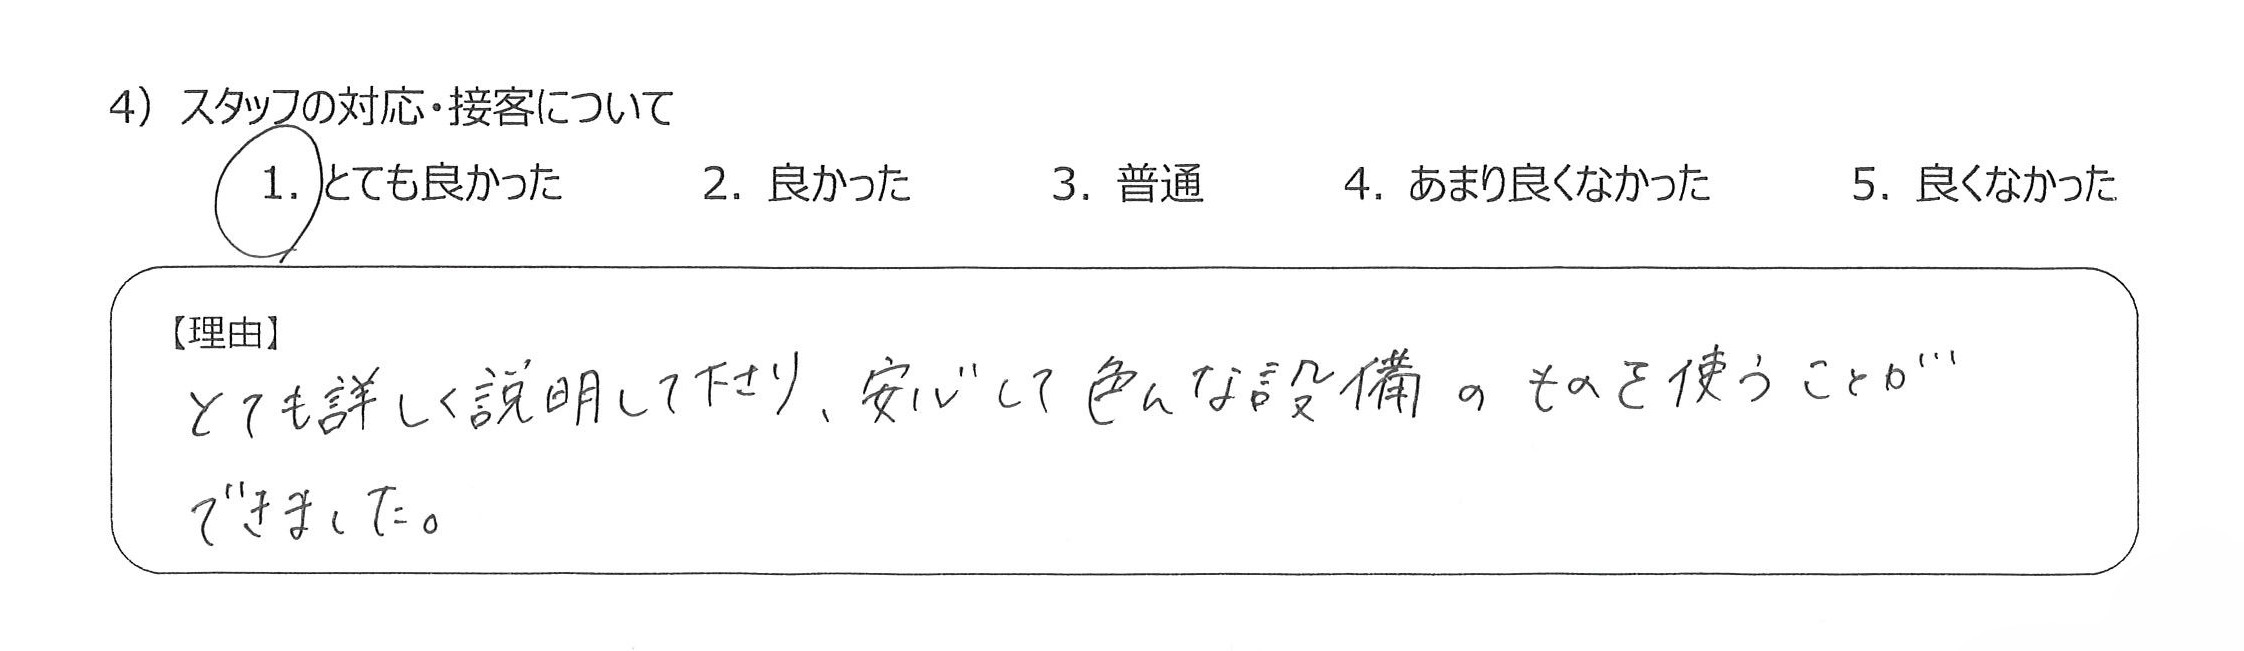 4）スタッフの対応・接客について
1. とても良かった 2. 良かった 3. 普通 4. あまり良くなかった 5. 良くなかった
【理由】
とても詳しく説明して下さり、安心して色んな設備のものを使うことが
できました。